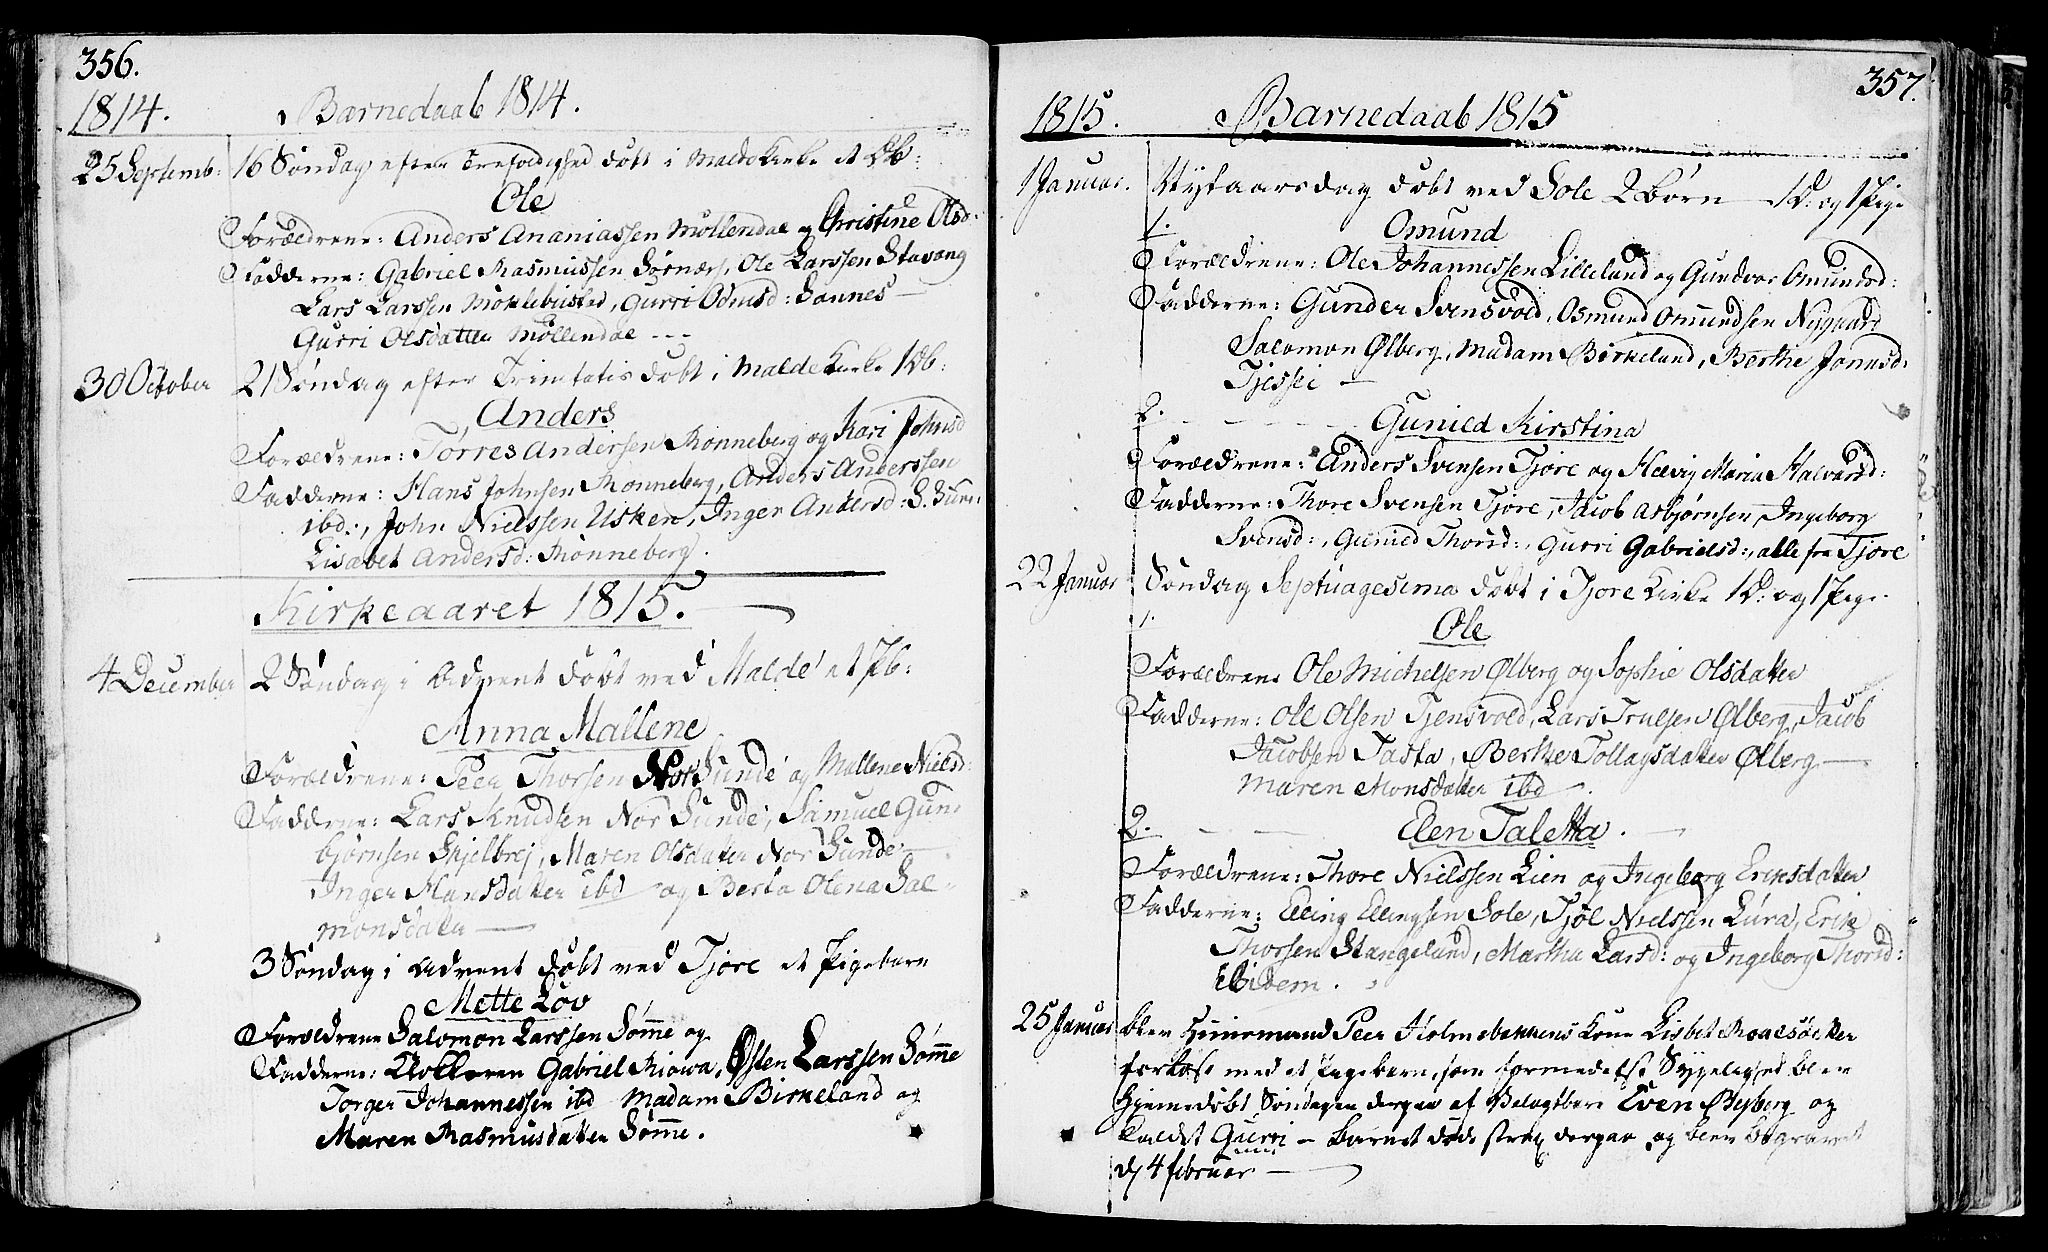 356.
1814. Barnedaab 1814.
25 Septemb: 16 Søndag efter Trefoldighed døbt i Malde Kirke et Db:
Ole
Forældrene: Anders Ananiassen Møllendal og Christine Olsd:
Fadderne: Gabriel Rasmussen Sørnæs, Ole Larssen Stavang
Lars Larssen Møklebusted, Gurri Odmsd: Sannes
Gurri Olsdatter Møllendal ---
30 October 21 Søndag efter Trinitatis døbt i Malde Kirke 1 Db:
Anders
Forældrene: Torres Andersen Rønneberg og Kari Johnsd
Fadderne: Hans Johnsen Rønneberg, Anders Anderssen
ibd:, John Nielssen Usken, Inger Andersd: S. Sunn:
Lisabet Andersd: Rønneberg.
Kirkeaaret 1815.
4 December 2 Søndag i Advent døbt ved Malde et Pb:
Anna Mallene
Forældrene: Peer Thorsen Nor Sunde og Mallene Nielsd:
Fadderne: Lars Knudsen Nor Sunde, Samuel Gun-
bjørnsen Skjelbrej, Maren Olsdatter Nor Sunde
Inger Hansdatter ibd og Berta Olena Sal-
monsdatter
3 Søndag i Advent døbt ved Tjore et Pigebarn
Mette Løv
Forældrene Salomon Larssen Sømme og
Fadderne: Klokkeren Gabriel Kiowa, Østen Larssen Sømme
Torger Johannessen ibd Madam Birkeland og
Maren Rasmusdatter Sømme.
357.
1815. Barnedaab 1815
1 Januar. Nytaarsdag døbt ved Sole 2 Børn 1 D: og 1 Pige
1. Omund
Forældrene: Ole Johannessen Lilleland og Gundvor Omundsd:
Fadderne: Gunder Svensvold, Osmund Omundsen Nygaard
Salomon Ølberg, Madam Birkeland, Berthe Jonnsd:
Tjessei
2. Gunild Kirstina
Forældrene: Anders Svensen Tjore og Helvig Maria Halvorsd:
Fadderne: Thore Svensen Tjore, Jacob Asbjørnsen, Ingeborg
Svensd:, Gunild Thorsd:, Gurri Gabrielsd:, alle fra Tjore
22 Januar Søndag Septuagesima døbt i Tjore Kirke 1 D: og 1 Pige
1. Ole
Forældrene Ole Michelsen Ølberg og Sophie Olsdatter
Fadderne: Ole Olsen Tjensvold, Lars Trulsen Ølberg, Jacob
Jacobsen Tasta, Berthe Tollagsdatter Ølberg
Maren Monsdatter ibd.
2. Elen Taletta.
Forældrene: Thore Nielssen Lien og Ingeborg Eriksdatter
Fadderne: Elling Ellingsen Sole, Tjøl Nielssen Lura, Erik
Thorsen Stangeland, Martha Larsd: og Ingeborg Thorsd:
ibidem.
25 Januar blev Huusmand Peer Holmebakkens Kone Lisbet Roalsdatter
forløst med et Pigebarn, som formedelst Sygelighed blev
hjemmedøbt Søndagen derpaa af Even Østberg og
kaldet Gurri – Barnet døde strax derpaa og blev begravet
d 4 februar